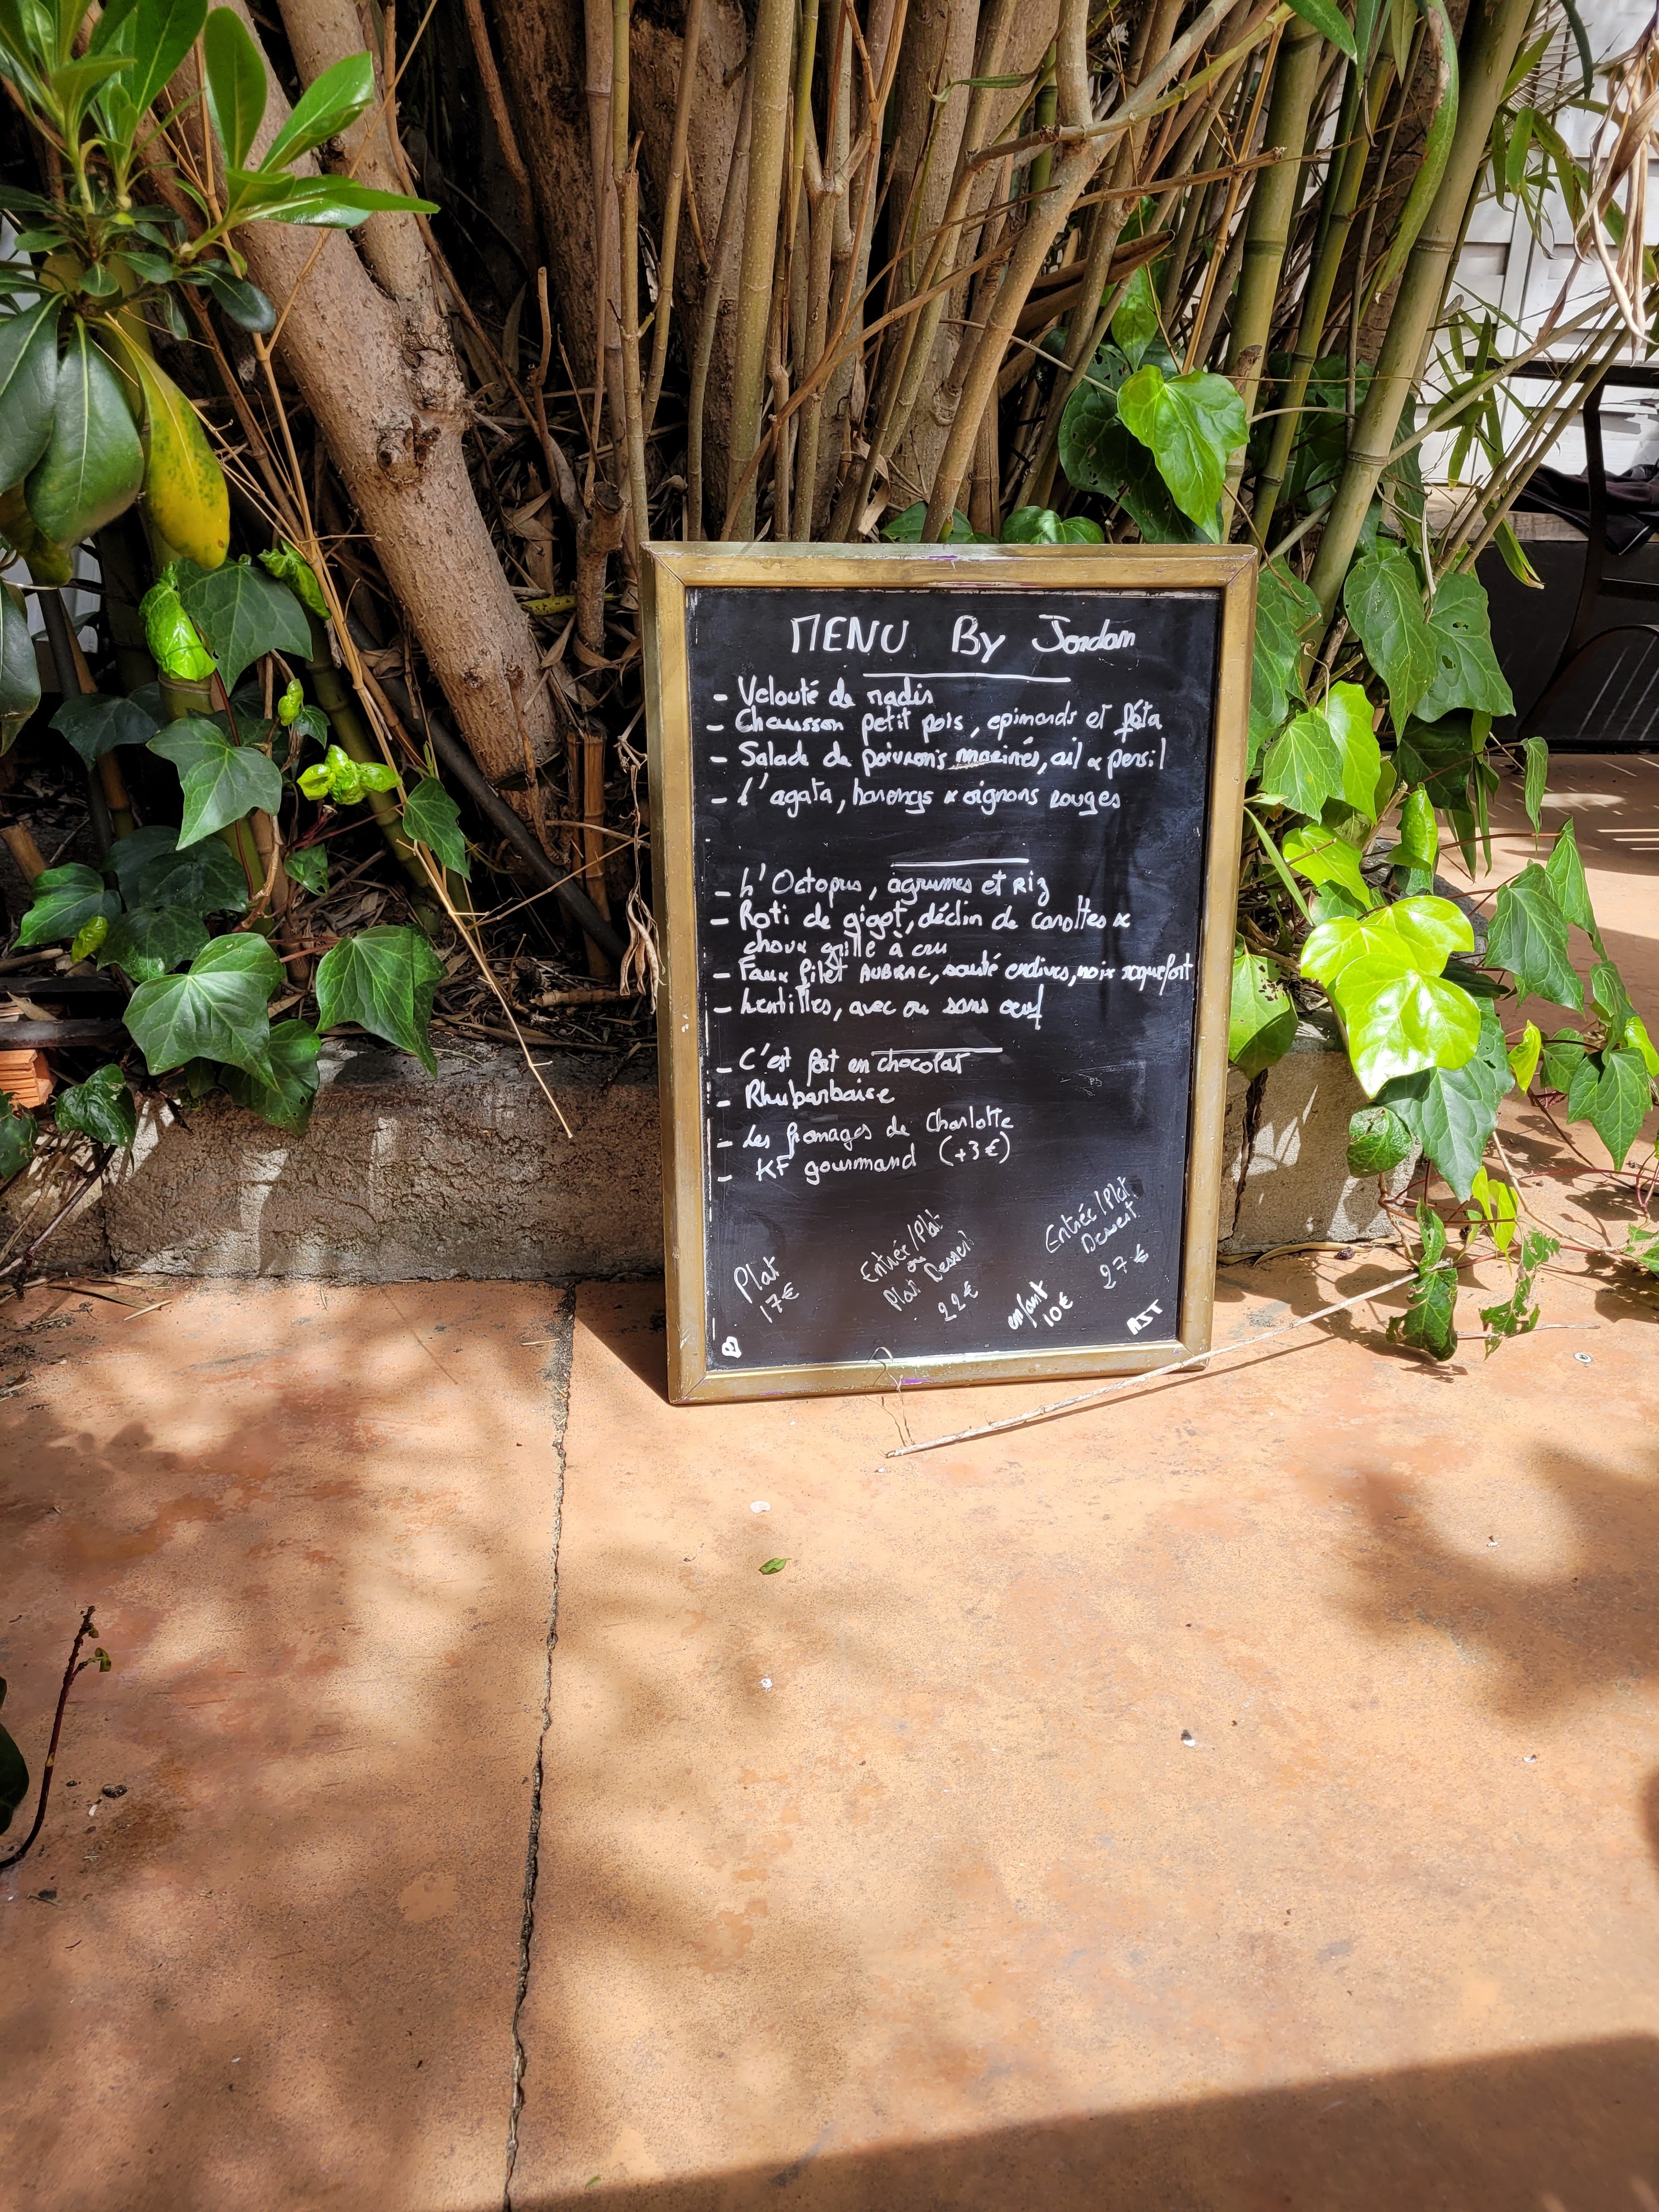 MENU By Jordan
- Velouté de radis
- Chausson petit pois, epinards et féta
- Salade de poivrons marinés, ail & persil
- L'agata, harengs & oignons rouges
- L'Octopus, agrumes et Riz
- Roti de gigot, déclin de carottes &
choux grillé à cru
- Faux filet AUBRAC, sauté endives, noix roquefort
- Lentilles, avec ou sans œuf
- C'est fat en chocolat
- Rhubarbaise
- Les fromages de Charlotte
- KF gourmand (+3€)
Plat
17€
Entrée/Plat
ou
Plat Dessert
22€
enfant
10€
Entrée/Plat
Dessert
27€